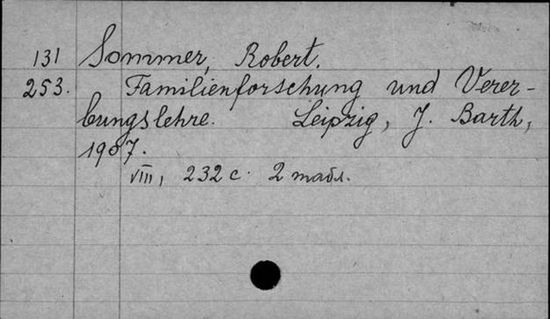 131 Sommer, Robert.
253. Familienforschung und Verer-
bungslehre. Leipzig, J. Barth,
1907.
VIII, 232 с. 2 табл.